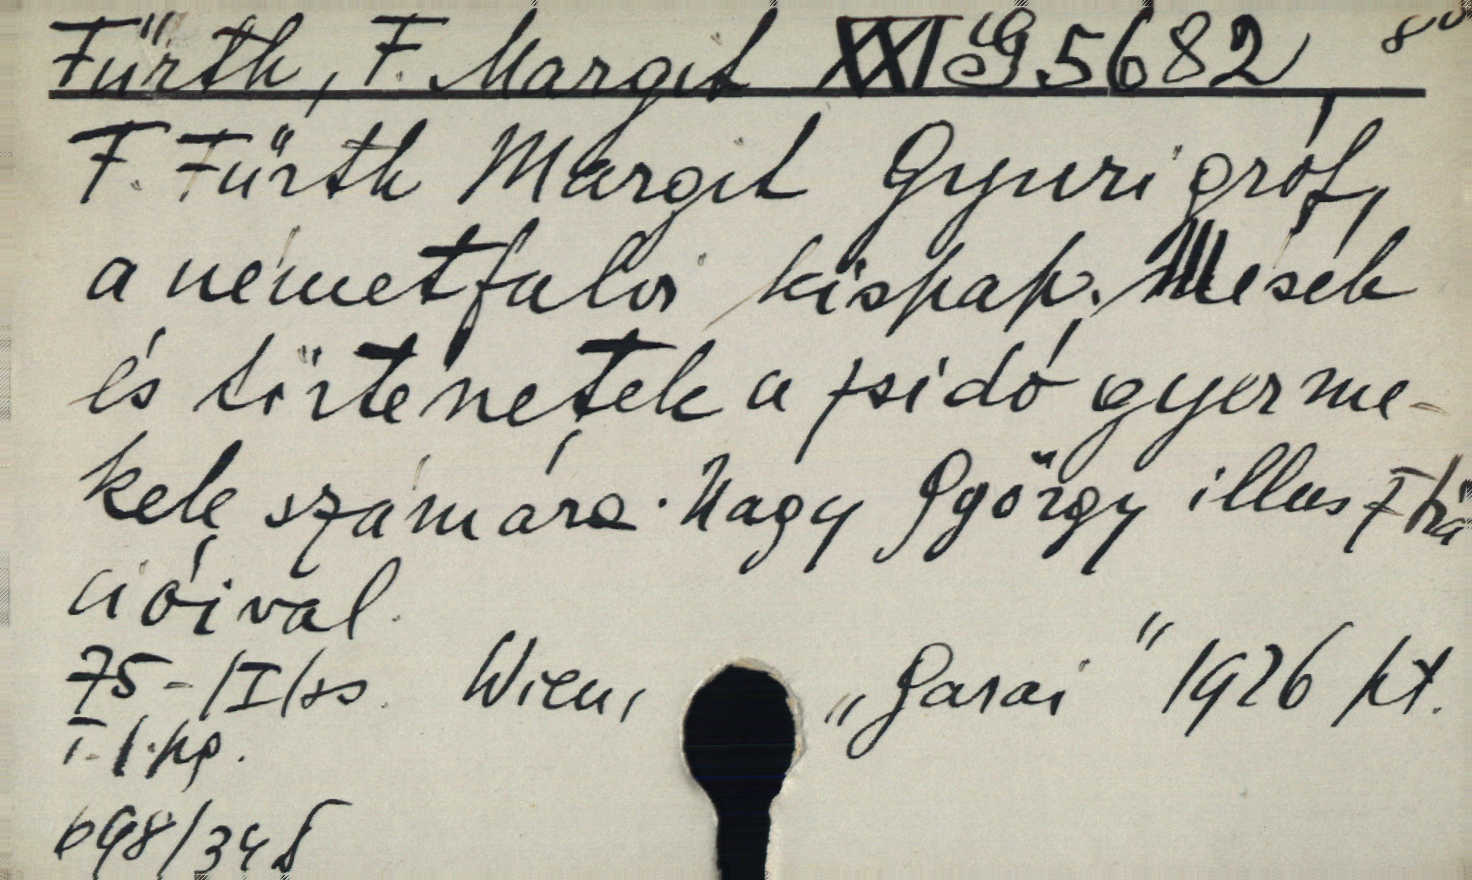 Fürth, F. Margit XXI G 5682 8°
F. Fürth Margit Gyuri gróf,
a németfalvi kispap. Mesék
és történetek a zsidó gyerme-
kek számára. Nagy György illusztrá
cióival.
75-/I/ss. Wien, „Garai" 1926 kt.
698/34